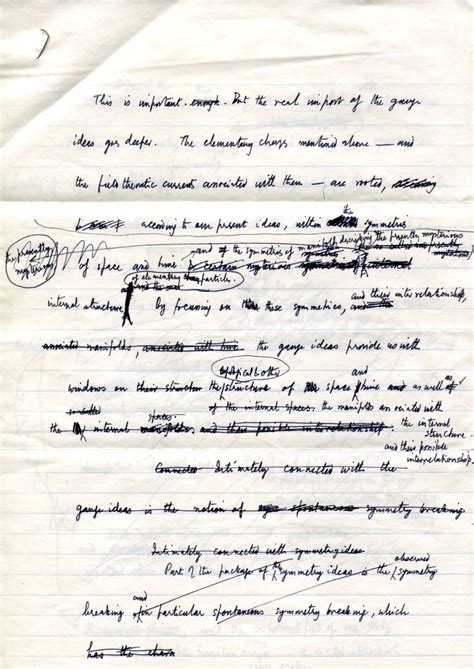 This is important. enough. But the real import of the gauge
ideas goes deeper. The elementary charges mentioned above — and
the field theoretic currents associated with them — are rooted,
according to our present ideas, within the symmetries
the presently mysterious
of space and time and of the symmetries of manifold describing the presently mysterious
is certain mysterious
of elementary particles
internal structure By focussing on these symmetries, and their interrelationship,
associated manifolds, associated with time the gauge ideas provide us with
windows on their structure the structure of space and time and as well as
of the internal spaces. the manifolds associated with
the internal spaces and their possible interrelationship the internal structure
and their possible interrelationship.
Connected Intimately connected with the
gauge ideas is the notion of spontaneous symmetry breaking
Intimately connected with symmetry ideas
Part of the package of the symmetry ideas is the observed symmetry
breaking and in particular spontaneous symmetry breaking, which
has the charm